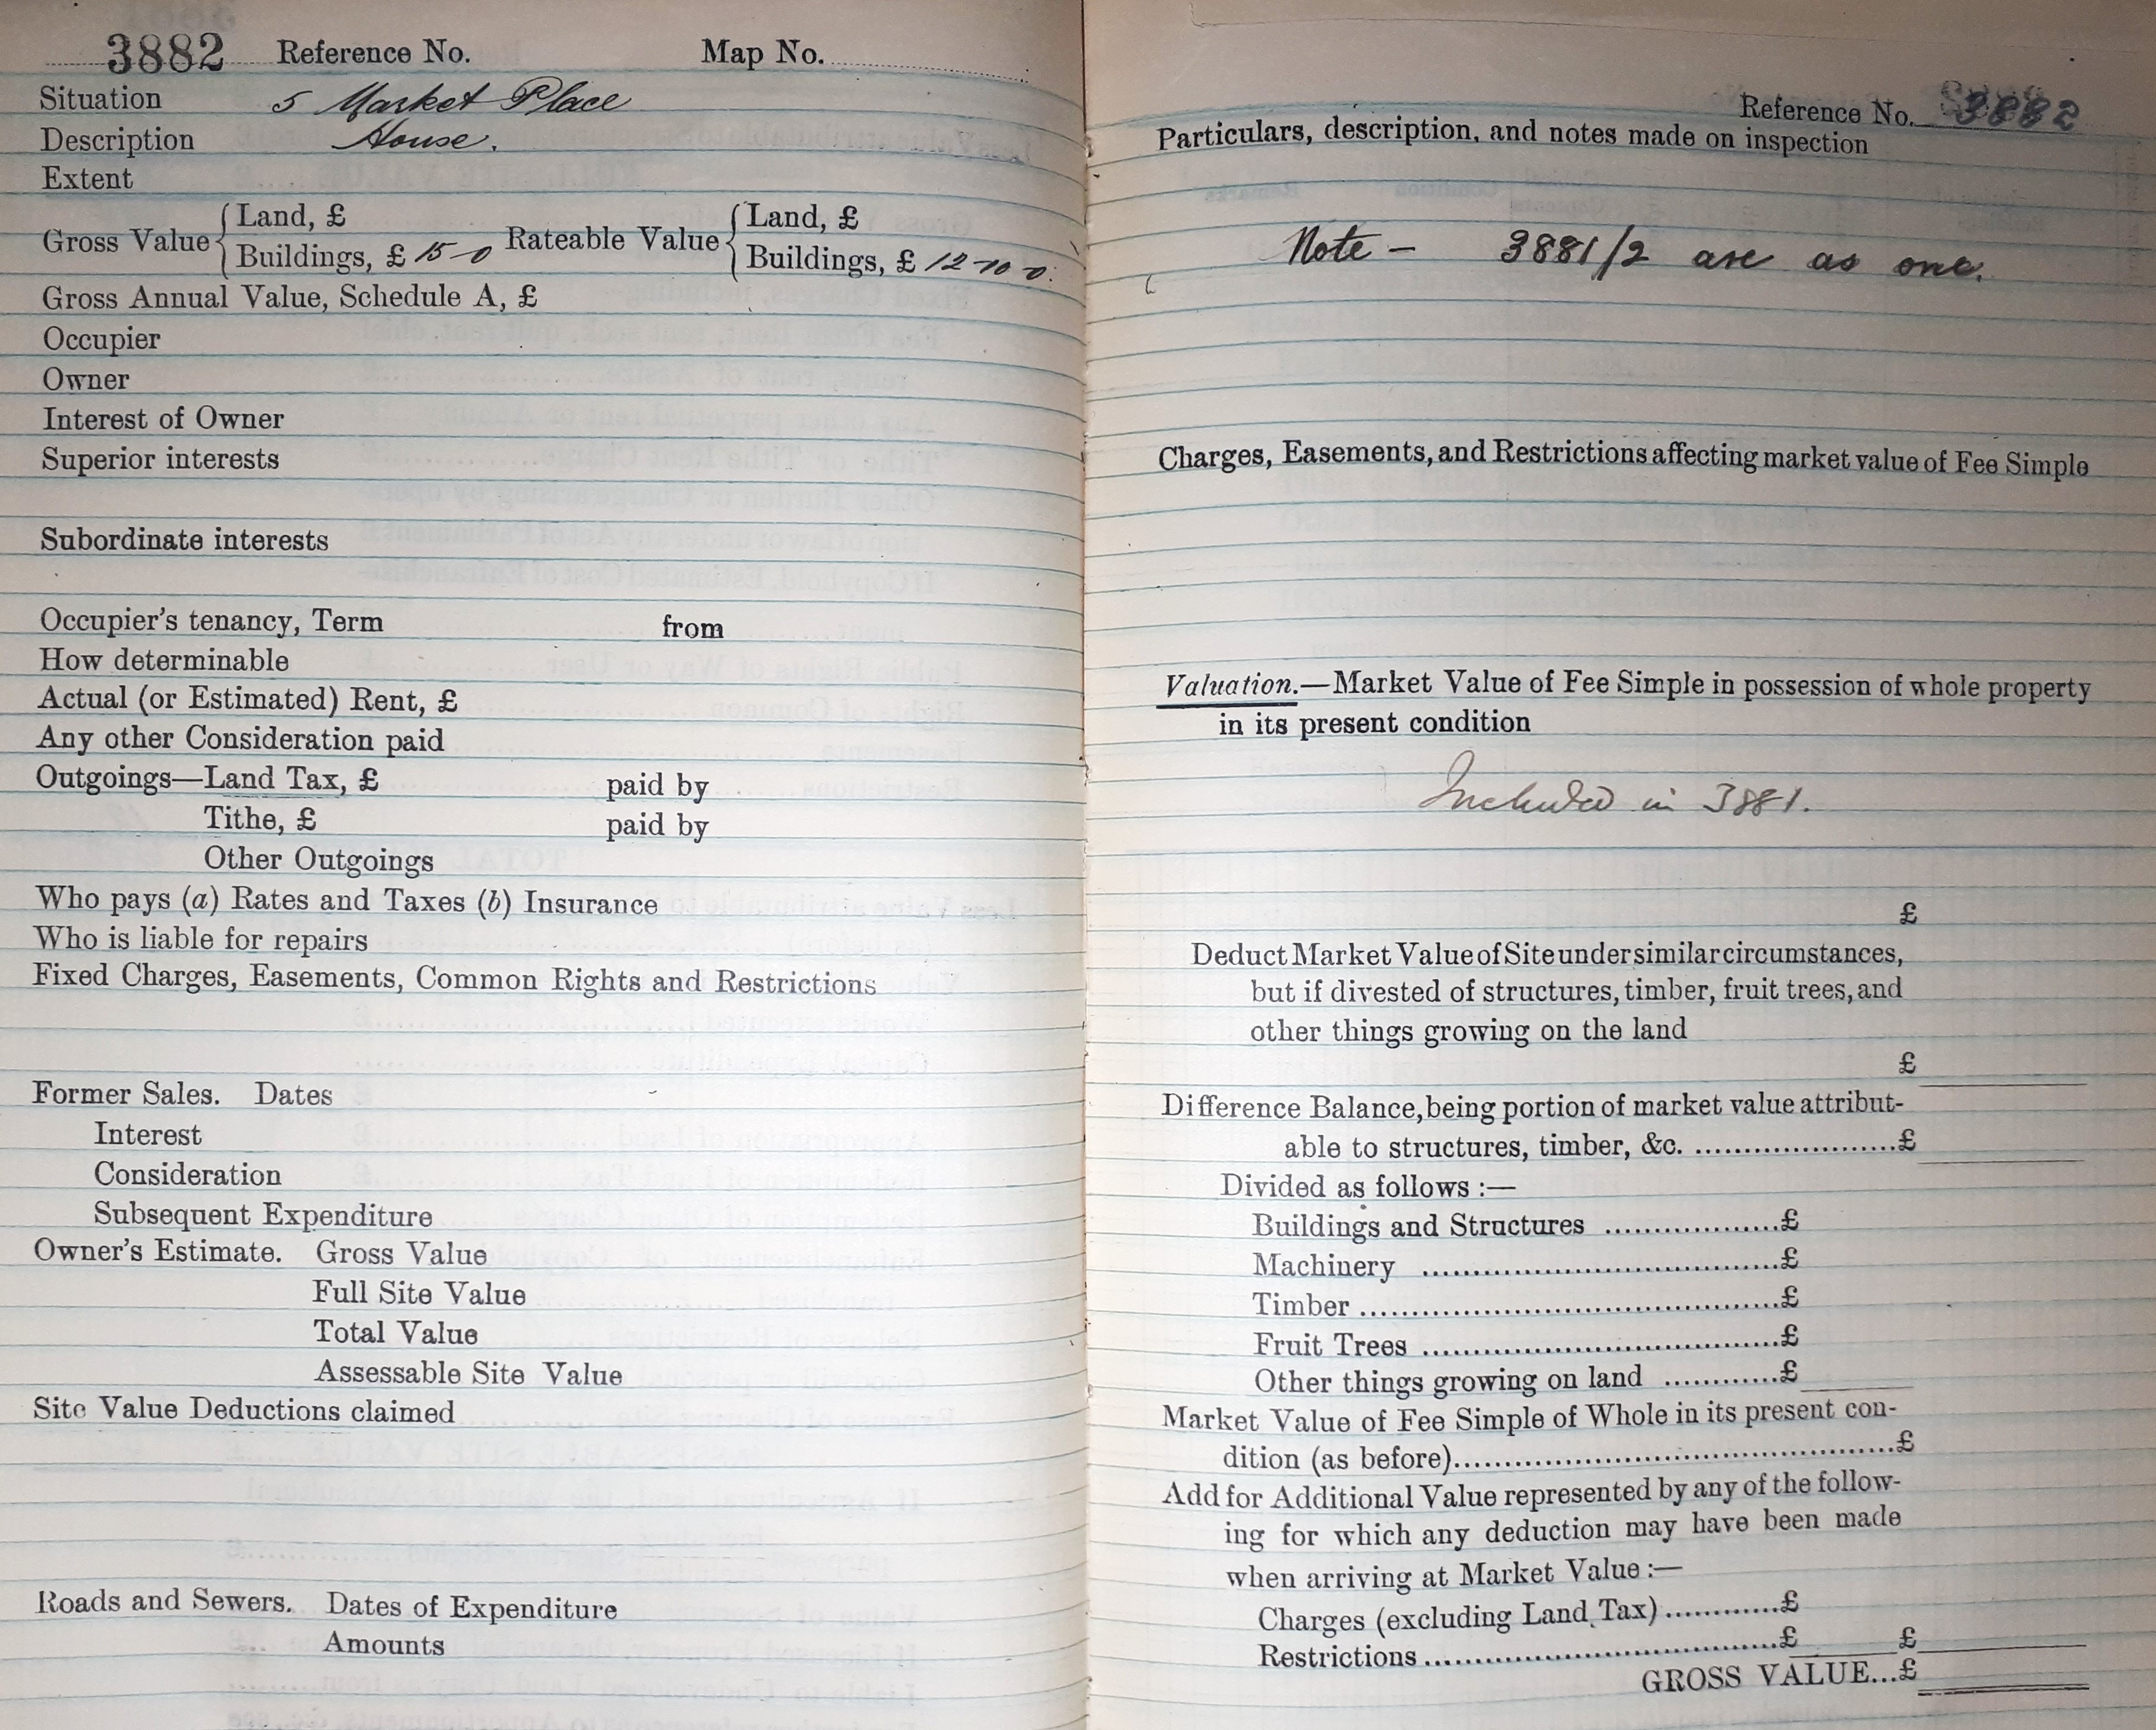 3882 Reference No. Map No.
Situation 5 Market Place
Description House.
Extent
Gross Value { Land, £ Rateable Value { Land, £
Buildings, £ 15-0 Buildings, £ 12-10-0.
Gross Annual Value, Schedule A, £
Occupier
Owner
Interest of Owner
Superior interests
Subordinate interests
Occupier's tenancy, Term from
How determinable
Actual (or Estimated) Rent, £
Any other Consideration paid
Outgoings—Land Tax, £ paid by
Tithe, £ paid by
Other Outgoings
Who pays (a) Rates and Taxes (b) Insurance
Who is liable for repairs
Fixed Charges, Easements, Common Rights and Restrictions
Former Sales. Dates
Interest
Consideration
Subsequent Expenditure
Owner's Estimate. Gross Value
Full Site Value
Total Value
Assessable Site Value
Site Value Deductions claimed
Roads and Sewers. Dates of Expenditure
Amounts
Reference No. 3882
Particulars, description, and notes made on inspection
Note - 3881/2 are as one.
Charges, Easements, and Restrictions affecting market value of Fee Simple
Valuation.—Market Value of Fee Simple in possession of whole property
in its present condition
Included in 3881.
£
Deduct Market Value of Site under similar circumstances,
but if divested of structures, timber, fruit trees, and
other things growing on the land
£
Difference Balance, being portion of market value attribut-
able to structures, timber, &c. ......................£
Divided as follows :—
Buildings and Structures ..................£
Machinery .....................................£
Timber ...........................................£
Fruit Trees .....................................£
Other things growing on land ............£
Market Value of Fee Simple of Whole in its present con-
dition (as before)..............................................£
Add for Additional Value represented by any of the follow-
ing for which any deduction may have been made
when arriving at Market Value :—
Charges (excluding Land Tax) ............£
Restrictions .....................................£ £
GROSS VALUE...£